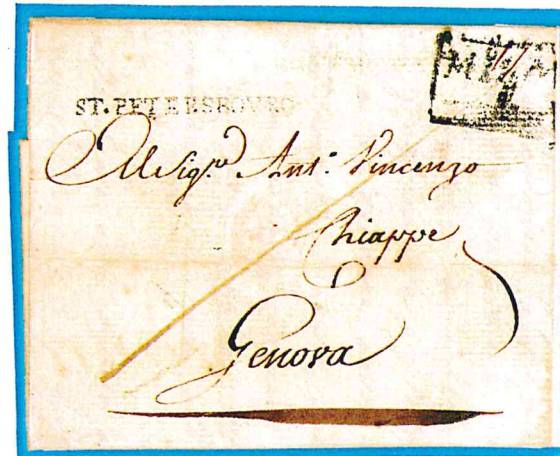 ST. PETERSBOURG
Al Sig.re Ant.o Vincenzo
Chiappe
Genova